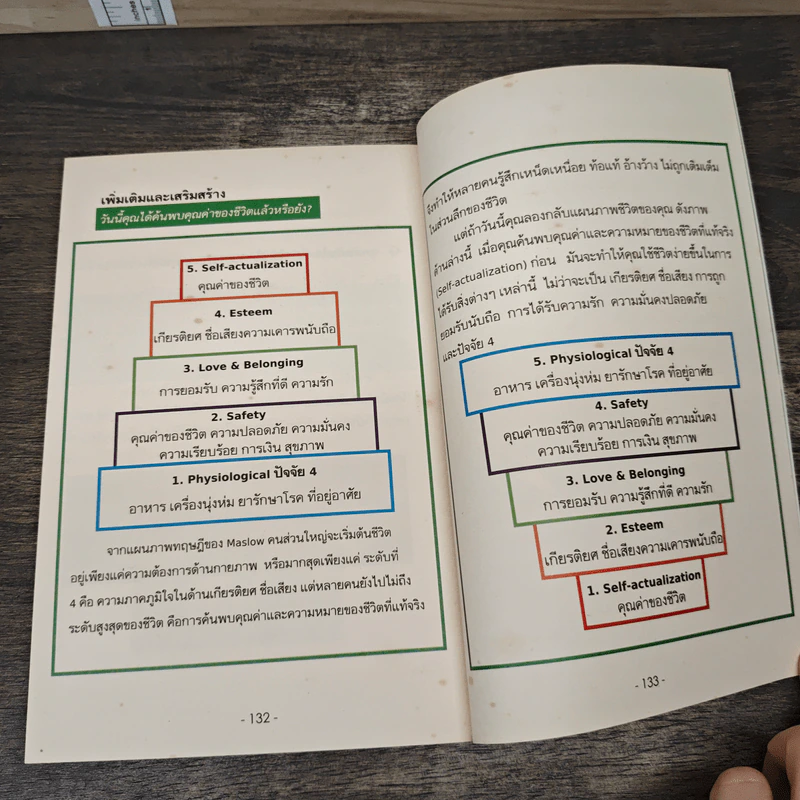 inches
เพิ่มเติมและเสริมสร้าง
วันนี้คุณได้ค้นพบคุณค่าของชีวิตแล้วหรือยัง?
5. Self-actualization
คุณค่าของชีวิต
4. Esteem
เกียรติยศ ชื่อเสียงความเคารพนับถือ
3. Love & Belonging
การยอมรับ ความรู้สึกที่ดี ความรัก
2. Safety
คุณค่าของชีวิต ความปลอดภัย ความมั่นคง
ความเรียบร้อย การเงิน สุขภาพ
1. Physiological ปัจจัย 4
อาหาร เครื่องนุ่งห่ม ยารักษาโรค ที่อยู่อาศัย
จากแผนภาพทฤษฎีของ Maslow คนส่วนใหญ่จะเริ่มต้นชีวิต
อยู่เพียงแค่ความต้องการด้านกายภาพ หรือมากสุดเพียงแค่ ระดับที่
4 คือ ความภาคภูมิใจในด้านเกียรติยศ ชื่อเสียง แต่หลายคนยังไปไม่ถึง
ระดับสูงสุดของชีวิต คือการค้นพบคุณค่าและความหมายของชีวิตที่แท้จริง
- 132 -
จึงทำให้หลายคนรู้สึกเหน็ดเหนื่อย ท้อแท้ อ้างว้าง ไม่ถูกเติมเต็ม
ในส่วนลึกของชีวิต
แต่ถ้าวันนี้คุณลองกลับแผนภาพชีวิตของคุณ ดังภาพ
ด้านล่างนี้ เมื่อคุณค้นพบคุณค่าและความหมายของชีวิตที่แท้จริง
(Self-actualization) ก่อน มันจะทำให้คุณใช้ชีวิตง่ายขึ้นในการ
ได้รับสิ่งต่างๆ เหล่านี้ ไม่ว่าจะเป็น เกียรติยศ ชื่อเสียง การถูก
ยอมรับนับถือ การได้รับความรัก ความมั่นคงปลอดภัย
และปัจจัย 4
5. Physiological ปัจจัย 4
อาหาร เครื่องนุ่งห่ม ยารักษาโรค ที่อยู่อาศัย
4. Safety
คุณค่าของชีวิต ความปลอดภัย ความมั่นคง
ความเรียบร้อย การเงิน สุขภาพ
3. Love & Belonging
การยอมรับ ความรู้สึกที่ดี ความรัก
2. Esteem
เกียรติยศ ชื่อเสียงความเคารพนับถือ
1. Self-actualization
คุณค่าของชีวิต
- 133 -